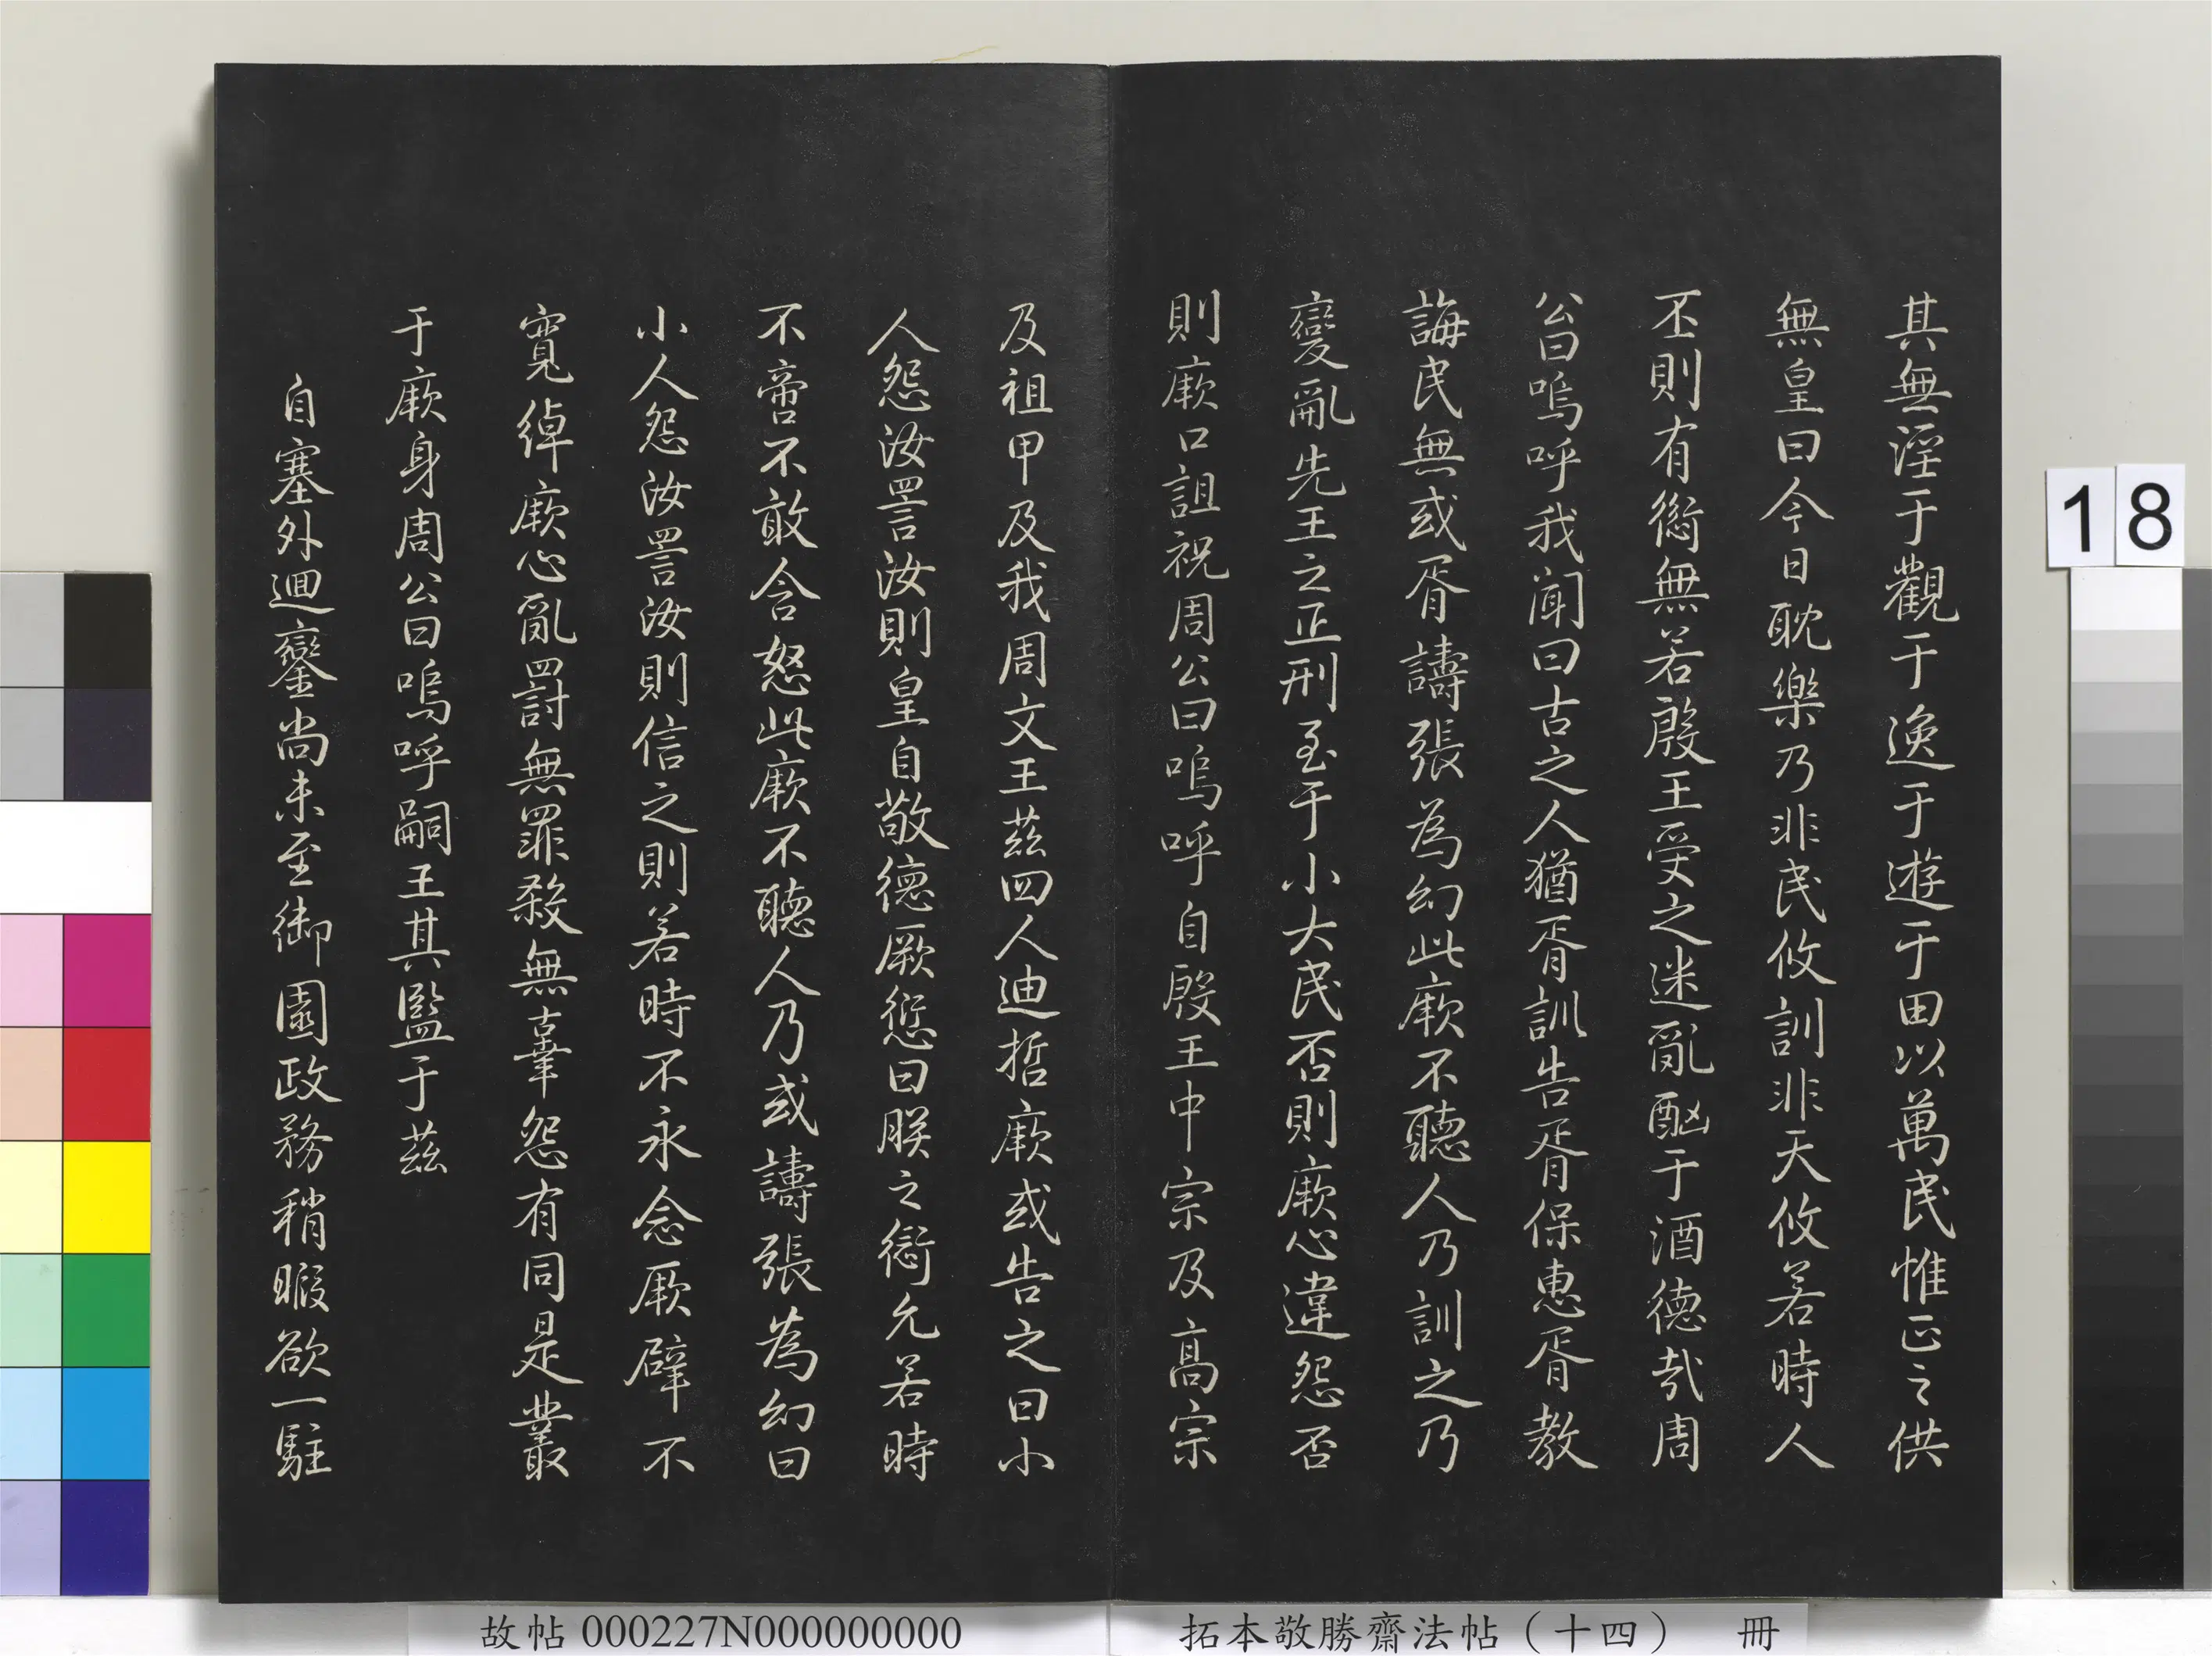 其無淫于觀于逸于遊于田以萬民惟正之供
無皇曰今日耽樂乃非民攸訓非天攸若時人
丕則有愆無若殷王受之迷亂酗于酒德哉周
公曰嗚呼我聞曰古之人猶胥訓告胥保惠胥教
誨民無或胥譸張為幻此厥不聽人乃訓之乃
變亂先王之正刑至于小大民否則厥心違怨否
則厥口詛祝周公曰嗚呼自殷王中宗及高宗
及祖甲及我周文王茲四人迪哲厥或告之曰小
人怨汝詈汝則皇自敬德厥愆曰朕之愆允若時
不啻不敢含怒此厥不聽人乃或譸張為幻曰
小人怨汝詈汝則信之則若時不永念厥辟不
寬綽厥心亂罰無罪殺無辜怨有同是叢
于厥身周公曰嗚呼嗣王其監于茲
自塞外迴鑾尚未至御園政務稍暇欲一駐
18
故帖 000227N000000000
拓本敬勝齋法帖（十四） 冊